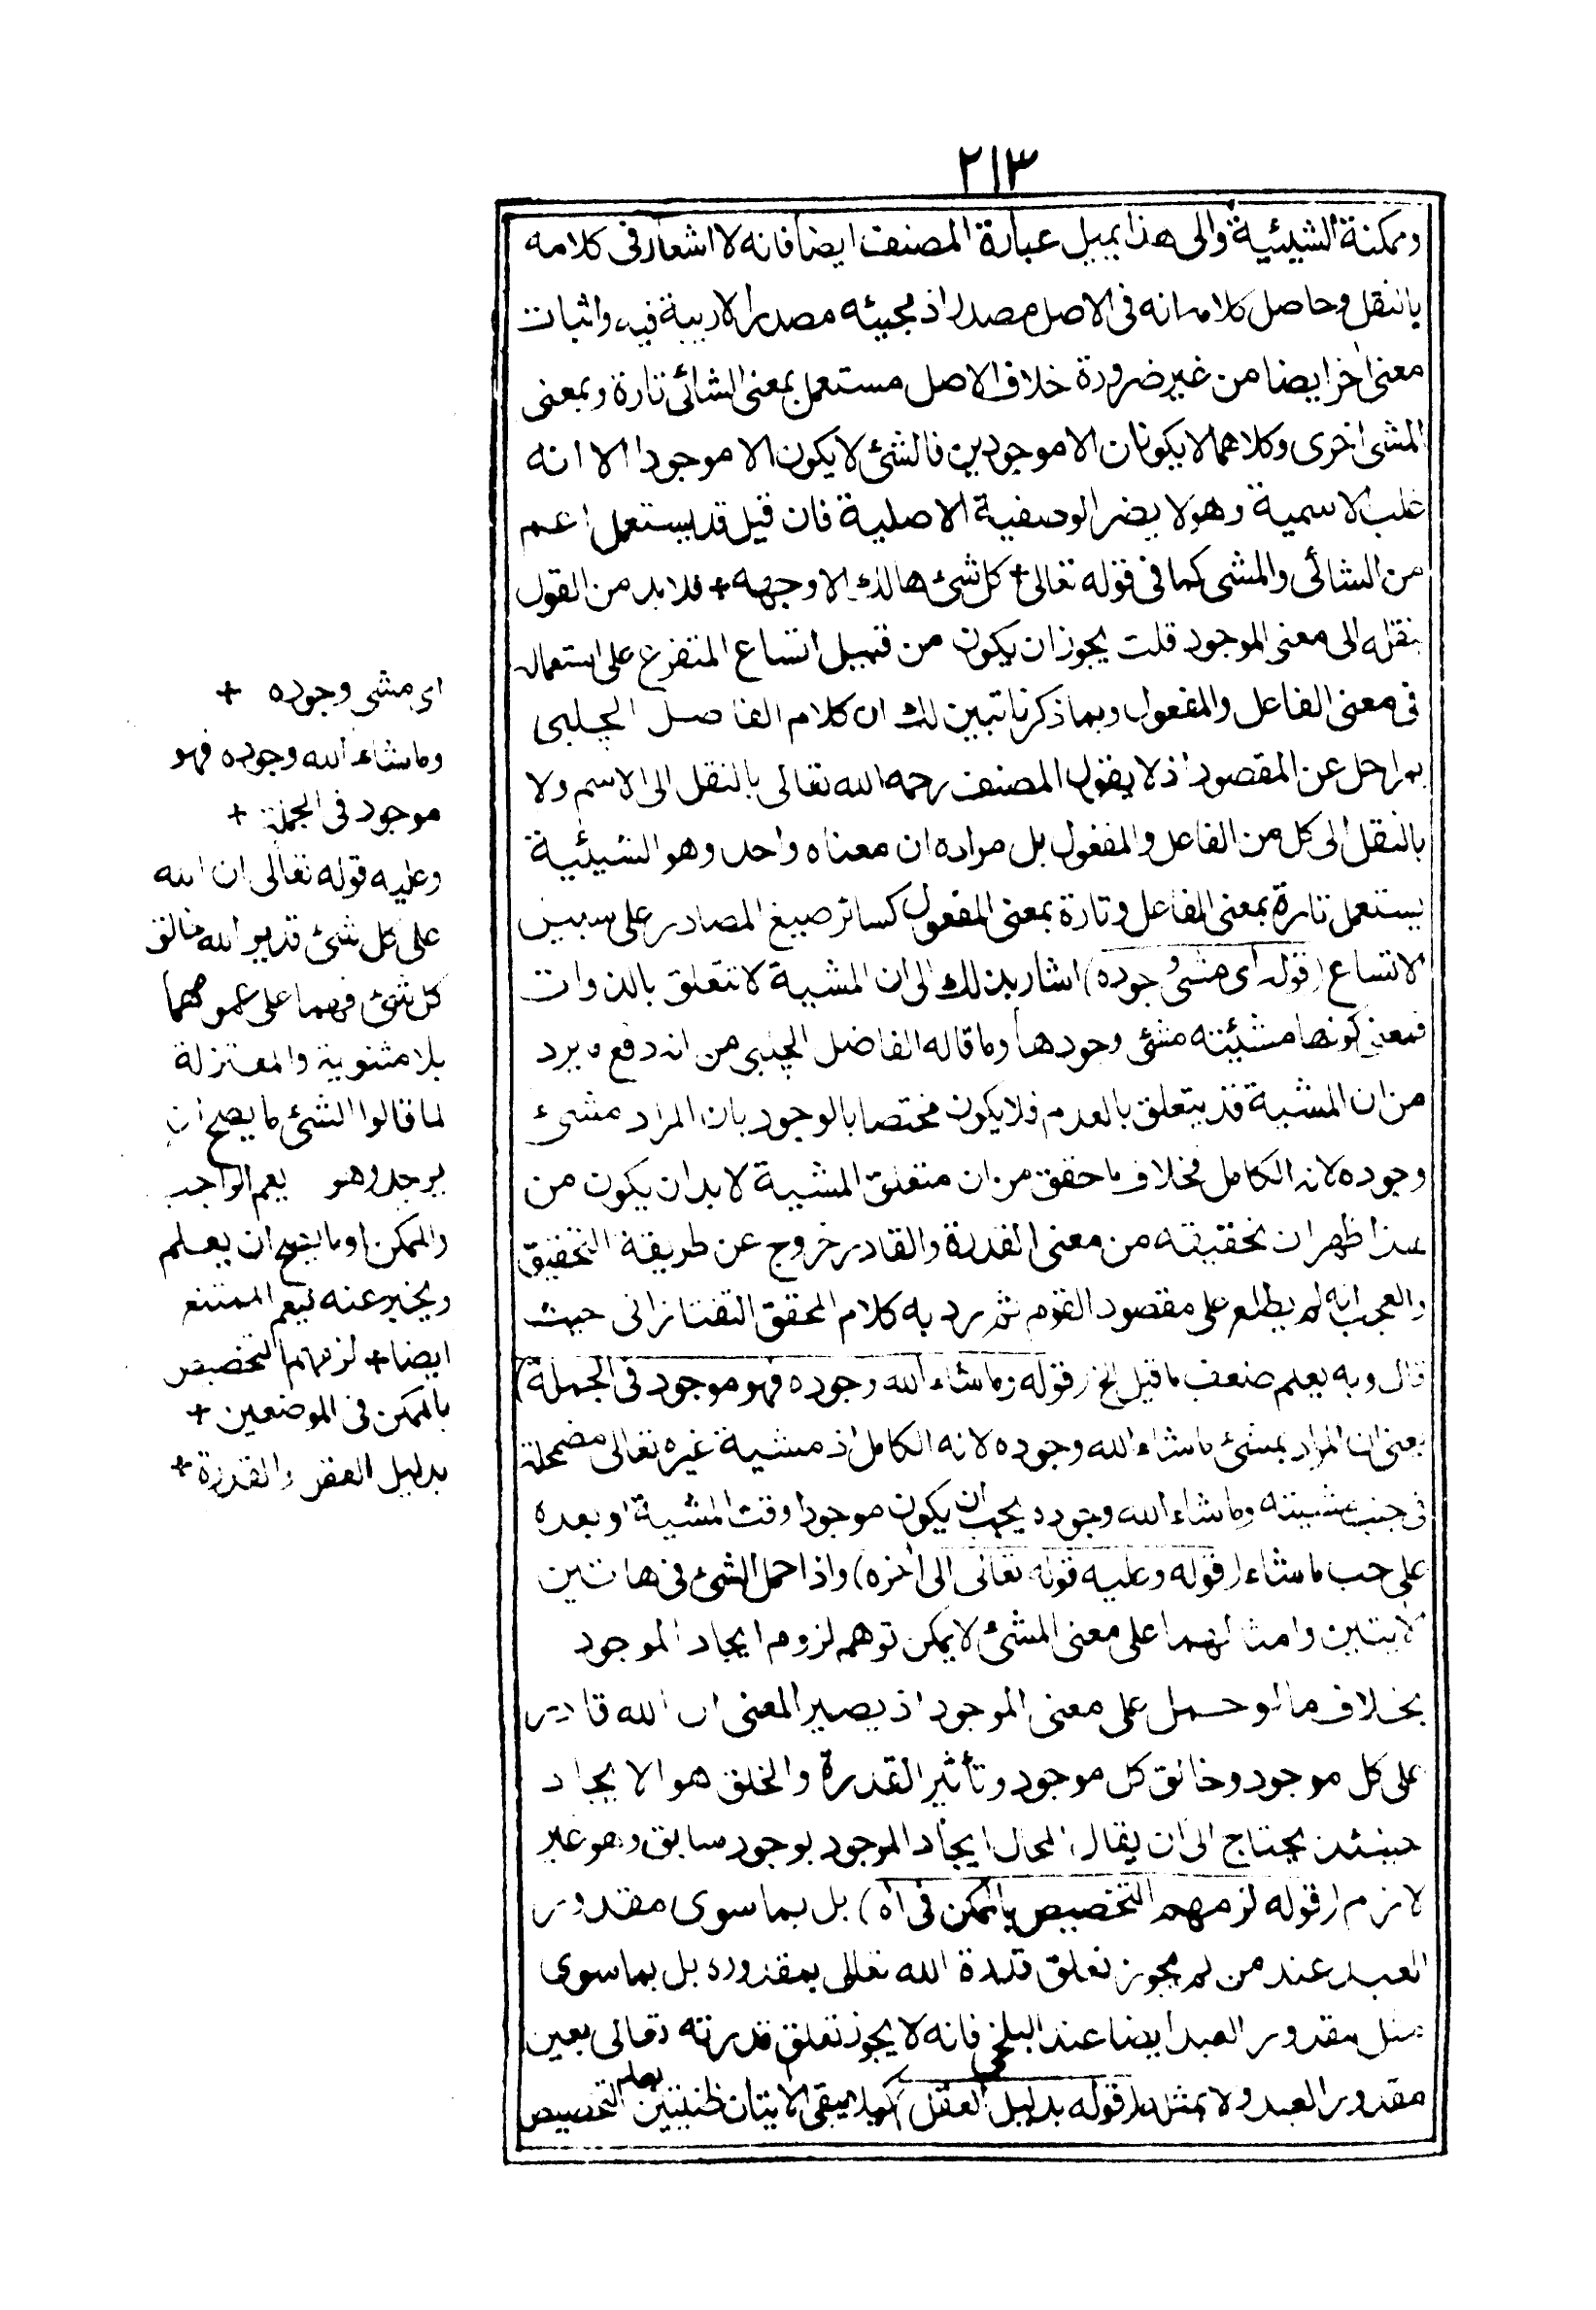 ٢١٣
وممكنة الشيئية والى هذا يميل عبارة المصنف ايضا فانه لا اشعار فى كلامه
بالنقل وحاصل كلامه انه فى الاصل مصدر اذ مجيئه مصدرا لا ريبة فيه واثبات
معنى اخر ايضا من غير ضرورة خلاف الاصل مستعمل بمعنى الشائى تارة وبمعنى
المشئ اخرى وكلاهما لا يكونان الا موجودين فالشئ لا يكون الا موجودا الا انه
غلب الاسمية وهو لا يضر الوصفية الاصلية فان قيل قد يستعمل اعم
من الشائى والمشى كما فى قوله تعالى + كل شئ هالك الا وجهه + فلا بد من القول
بنقله الى معنى الموجود قلت يجوز ان يكون من قبيل اتساع المتفرع على استعماله
فى معنى الفاعل والمفعول وبما ذكرنا تبين لك ان كلام الفاضل الچلبى
بمراحل عن المقصود اذ لا يقول المصنف رحمه الله تعالى بالنقل الى الاسم ولا
بالنقل الى كل من الفاعل والمفعول بل مراده ان معناه واحد وهو الشيئية
يستعمل تارة بمعنى الفاعل وتارة بمعنى المفعول كسائر صيغ المصادر على سبيل
الاتساع (قوله اى مشئ وجوده) اشار بذلك الى ان المشية لا تتعلق بالذوات
فمعنى كونها مشيئته مشئ وجودها وما قاله الفاضل الچلبى من انه دفع ما يرد
من ان المشية قد يتعلق بالعدم فلا يكون مختصا بالوجود بان المراد مشئ
وجوده لانه الكامل فخلاف ما حقق من ان متعلق المشية لا بد ان يكون من
هذا ظهر ان تحقيقه من معنى القدرة والقادر خروج عن طريقة التحقيق
والعجب انه لم يطلع على مقصود القوم ثم رد به كلام المحقق التفتازانى حيث
قال وبه يعلم ضعف ما قيل الخ (قوله وما شاء الله وجوده فهو موجود فى الجملة)
يعنى ان المراد بمشئ ما شاء الله وجوده لانه الكامل اذ مشية غيره تعالى مضمحلة
فى جنب مشيته وما شاء الله وجوده يجب ان يكون موجودا وقت المشية او بعده
على حسب ما شاء (قوله وعليه قوله تعالى الى اخره) واذا حمل الشئ فى هاتين
الايتين وامثالهما على معنى المشئ لا يمكن توهم لزوم ايجاد الموجود
بخلاف ما لو حمل على معنى الموجود اذ يصير المعنى ان الله قادر
على كل موجود وخالق كل موجود وتأثير القدرة والخلق هو الايجاد
حينئذ يحتاج الى ان يقال المحال ايجاد الموجود بوجود سابق وهو غير
لازم (قوله لزمهم التخصيص بالممكن فى اه) بل بما سوى مقدور
العبد عند من لم يجوز تعلق قدرة الله تعالى بمقدوره بل بما سوى
مثل مقدور العبد ايضا عند البلخى فانه لا يجوز تعلق قدرته تعالى بعين
مقدور العبد ولا بمثله (قوله بدليل العقل) يبقى الايتان ظنيتين التخصيص
اى مشئ وجوده +
وما شاء الله وجوده فهو
موجود فى الجملة +
وعليه قوله تعالى ان الله
على كل شئ قدير الله خالق
كل شئ فهما على عمومهما
بلا مثنوية والمعتزلة
لما قالوا الشئ ما يصح ان
يوجد وهو يعم الواجب
والممكن او ما يصح ان يعلم
ويخبر عنه فيعم الممتنع
ايضا + لزمهم التخصيص
بالممكن فى الموضعين +
بدليل العقل والقدرة +